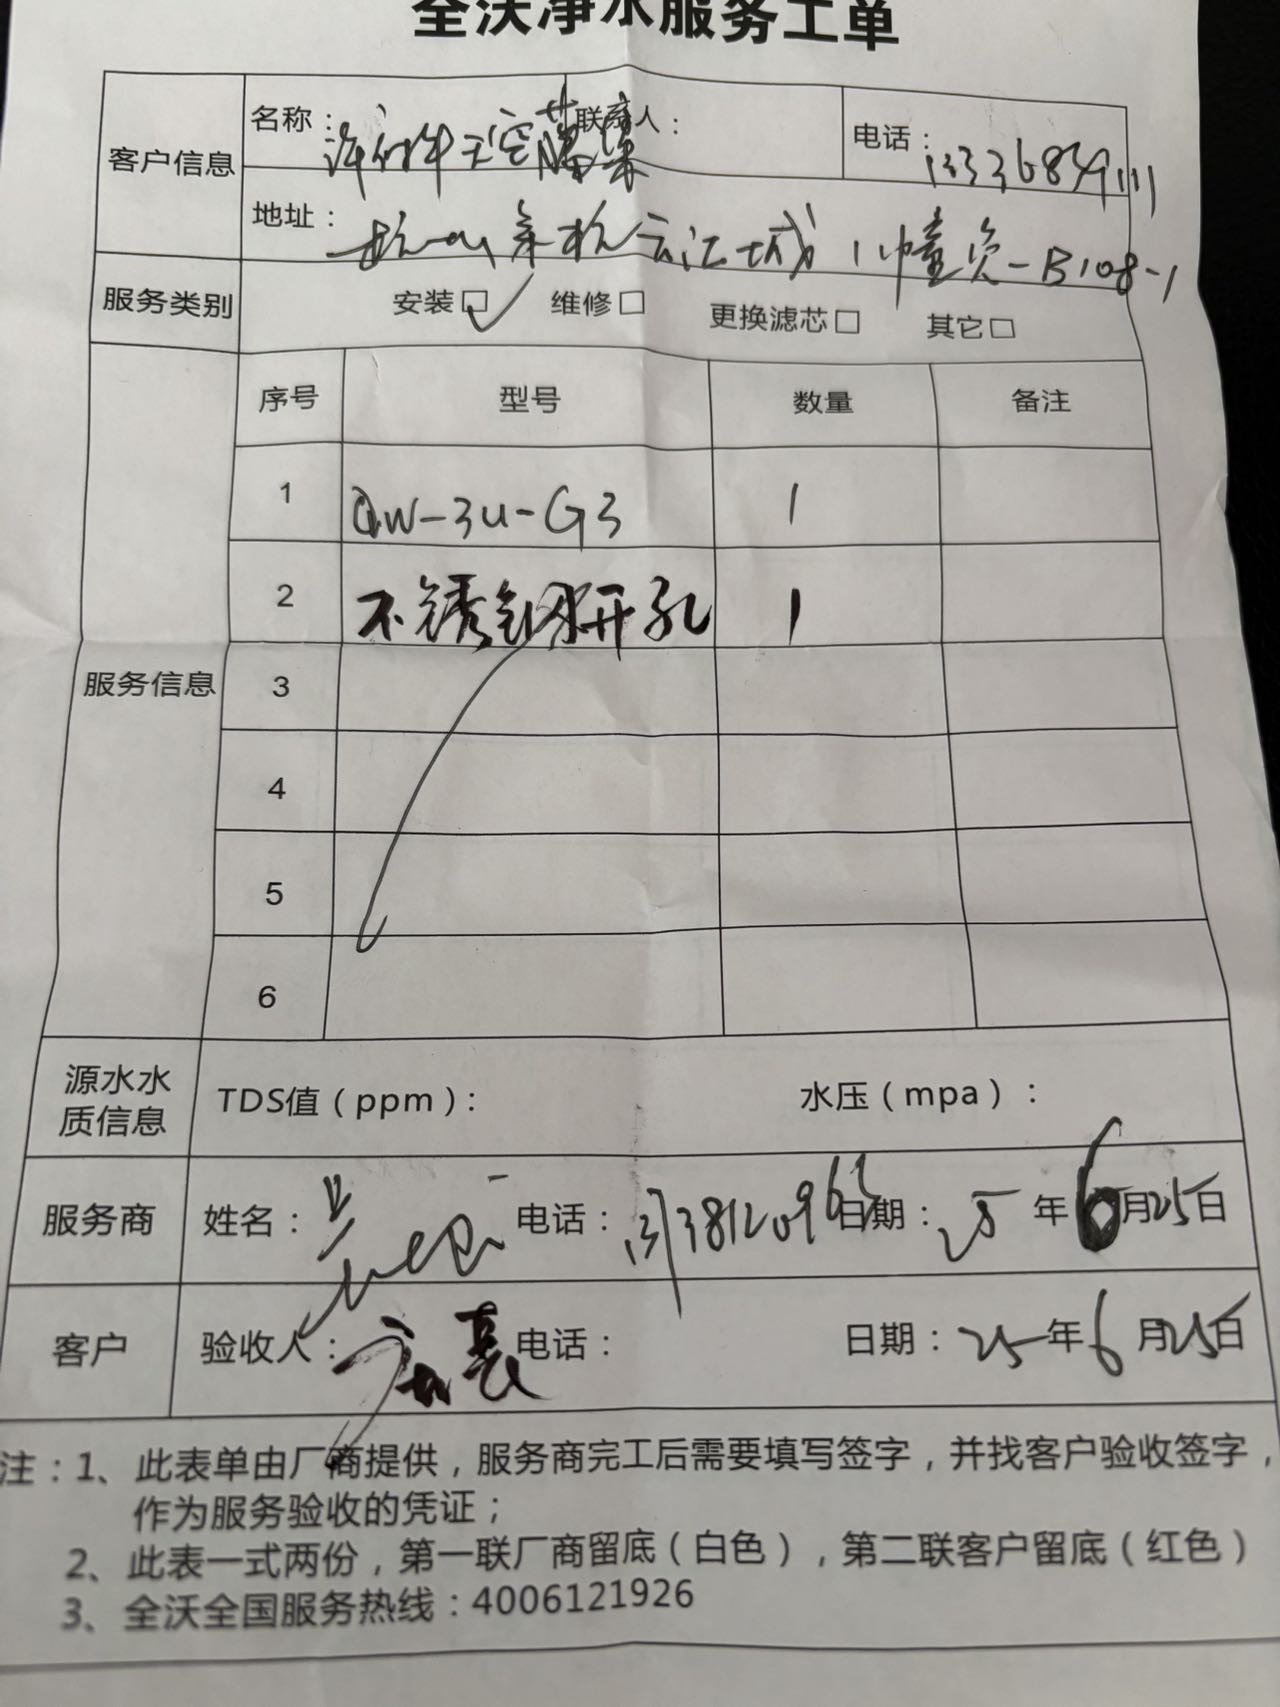 全沃净水服务工单
客户信息 名称： 联系人： 电话：
地址：
服务类别 安装□ 维修□ 更换滤芯□ 其它□
序号 型号 数量 备注
1 QW-3U-G3 1
2 不锈钢开孔 1
服务信息 3
4
5
6
源水水质信息 TDS值（ppm）： 水压（mpa）：
服务商 姓名： 电话： 日期：25年6月25日
客户 验收人： 电话： 日期：25年6月25日
注：1、此表单由厂商提供，服务商完工后需要填写签字，并找客户验收签字，
作为服务验收的凭证；
2、此表一式两份，第一联厂商留底（白色），第二联客户留底（红色）
3、全沃全国服务热线：4006121926